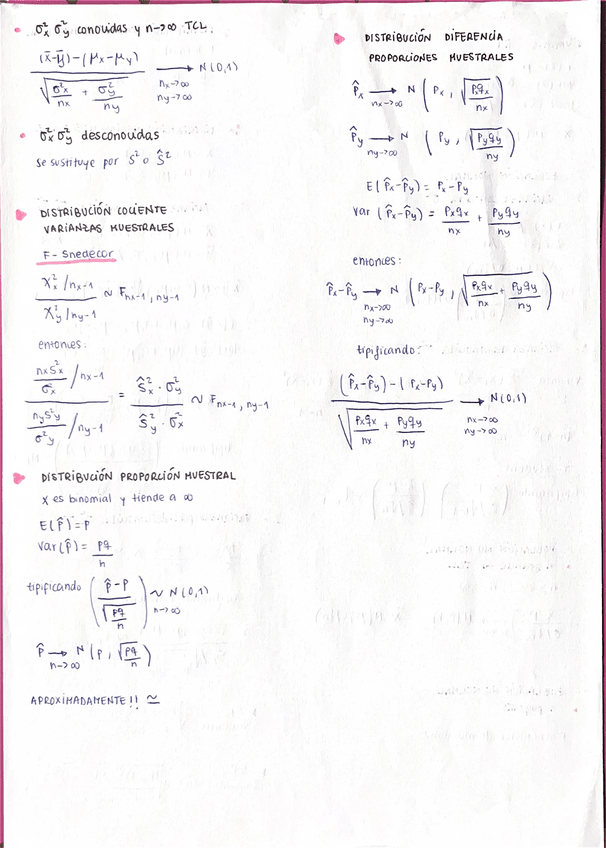 • σ²x σ²y conocidas y n→∞ TCL
(x̄-ȳ)-(μx-μy) / √(σ²x/nx + σ²y/ny) → N(0,1)
nx→∞
ny→∞
• σ²x σ²y desconocidas
se sustituye por S² o Ŝ²
DISTRIBUCIÓN COCIENTE
VARIANZAS MUESTRALES
F - Snedecor
(X²x /nx-1) / (X²y /ny-1) ~ Fnx-1, ny-1
entonces:
((nxS²x / σ²x) /nx-1) / ((nyS²y / σ²y) /ny-1) = (Ŝ²x · σ²y) / (Ŝ²y · σ²x) ~ Fnx-1, ny-1
DISTRIBUCIÓN PROPORCIÓN MUESTRAL
x es binomial y tiende a ∞
E(p̂)=p
Var(p̂)= pq/n
tipificando ((p̂-p) / √(pq/n)) ~ N(0,1)
n→∞
p̂ → N(p, √(pq/n))
n→∞
APROXIMADAMENTE!! ≃
DISTRIBUCIÓN DIFERENCIA
PROPORCIONES MUESTRALES
p̂x → N (px, √(pxqx/nx))
nx→∞
p̂y → N (py, √(pyqy/ny))
ny→∞
E(p̂x-p̂y)= px-py
Var (p̂x-p̂y) = pxqx/nx + pyqy/ny
entonces:
p̂x-p̂y → N (px-py, √(pxqx/nx + pyqy/ny))
nx→∞
ny→∞
tipificando:
((p̂x-p̂y)-(px-py)) / √(pxqx/nx + pyqy/ny) → N(0,1)
nx→∞
ny→∞